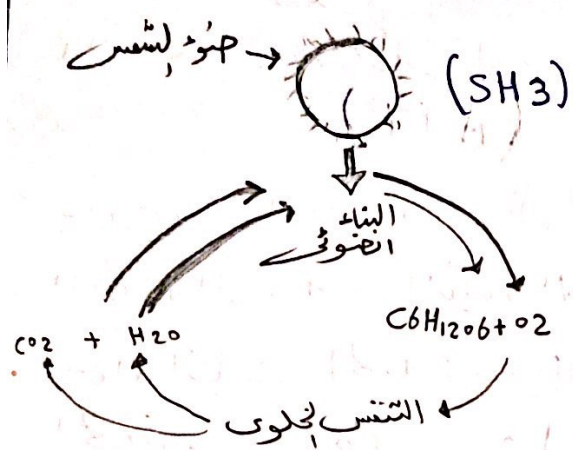 ضوء الشمس
(SH3)
البناء
الضوئى
CO2 + H2O
C6H12O6+O2
التنفس الخلوى